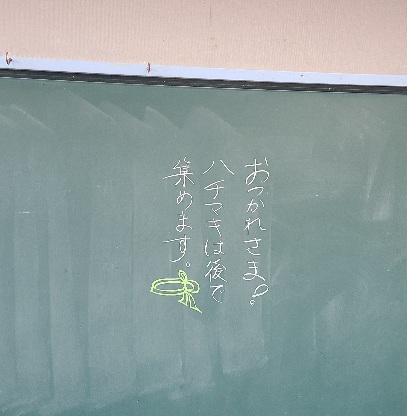 おつかれさま!
ハチマキは後で
集めます。